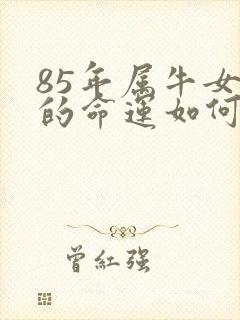 85年属牛女
的命運如何
曾紅强